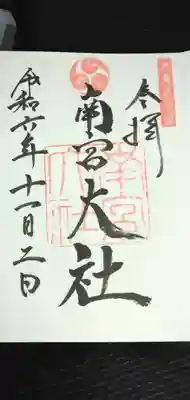 参拝
南宮大社
南宮大社
令和六年十一月二日